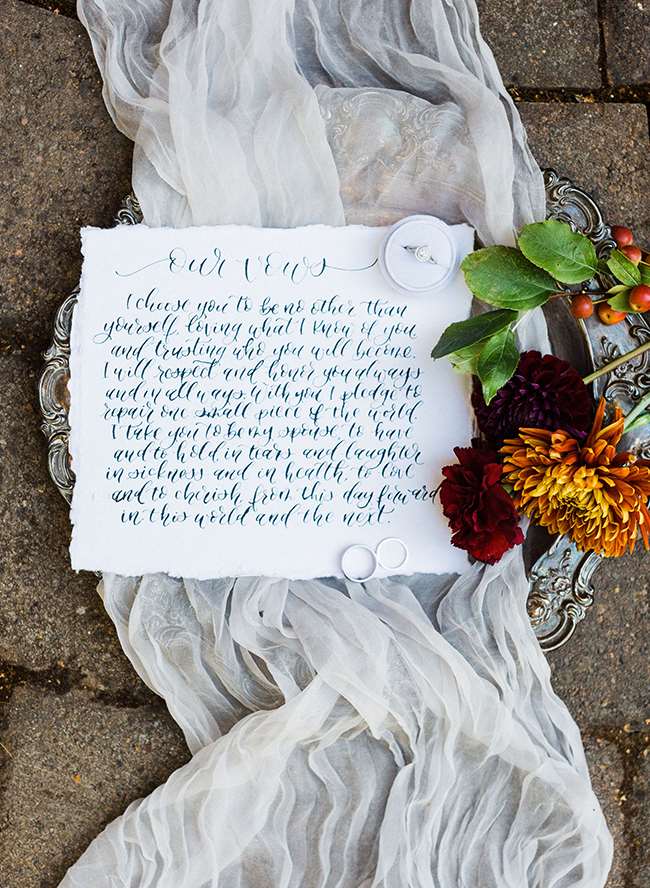 our vows
I choose you to be no other than
yourself, loving what I know of you
and trusting who you will become.
I will respect and honor you always
and in all ways. With you I pledge to
repair one small piece of the world.
I take you to be my spouse to have
and to hold in tears and laughter
in sickness and in health, to love
and to cherish from this day forward
in this world and the next.